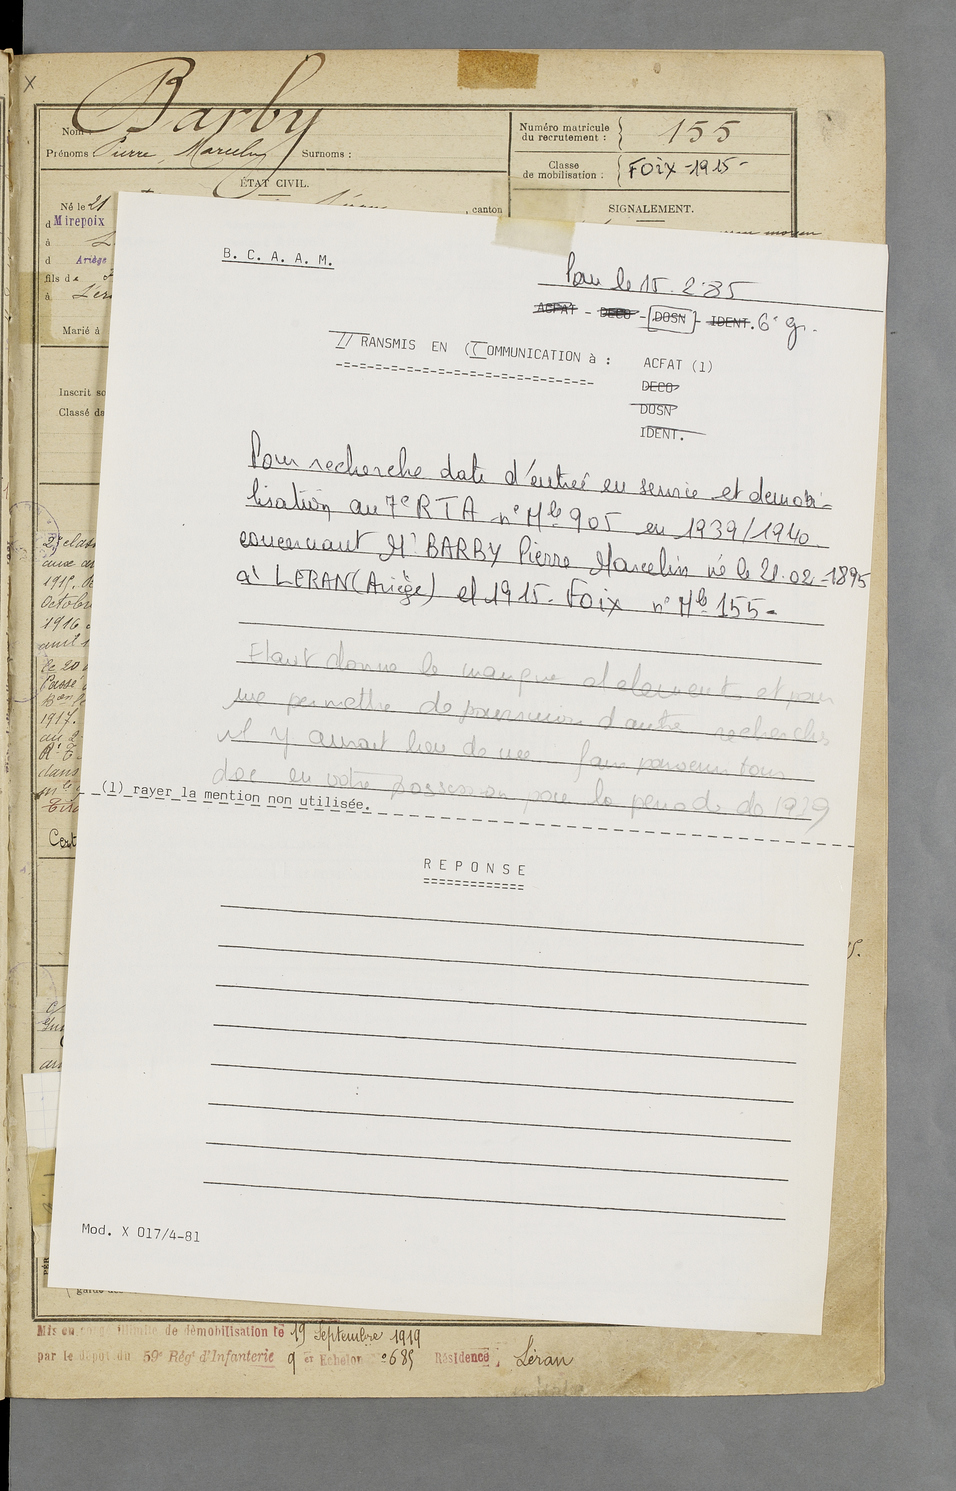 X
Barby
Nom :
Prénoms Pierre, Marcelin Surnoms :
Numéro matricule
du recrutement : 155
Classe
de mobilisation : FOIX -1915-
ÉTAT CIVIL.
SIGNALEMENT.
Né le 21
, canton
d Mirepoix
à
d Ariège
fils de
à Lér
Marié à
Inscrit so
Classé da
B. C. A. A. M.
Pau le 15.2.85
ACFAT - DECO - DOSN - IDENT. 6° g.
TRANSMIS EN COMMUNICATION à : ACFAT (1)
DECO
DOSN
IDENT.
Pour recherche date d'entrée en service et démobi-
lisation au 7e RTA n° Mle 905 en 1939/1940
concernant Mr BARBY Pierre Marcelin né le 21.02.1895
à LERAN (Ariège) cl 1915. Foix n° Mle 155-
Etant donné le manque d'elements et pour
me permettre de poursuivre d'autre recherches
il y aurait lieu de me faire parvenir tous
doc en votre possession pour la periode de 1939
(1) rayer la mention non utilisée.
REPONSE
Mod. X 017/4-81
2e class
1915.
Octobre
1916
avril 1
le 20
Passé
1917.
au 2
dans
Cert
Mis en congé illimité de démobilisation le 19 Septembre 1919
par le dépôt du 59e Régt d'Infanterie 9 er Echelon °685 Résidence, Léran